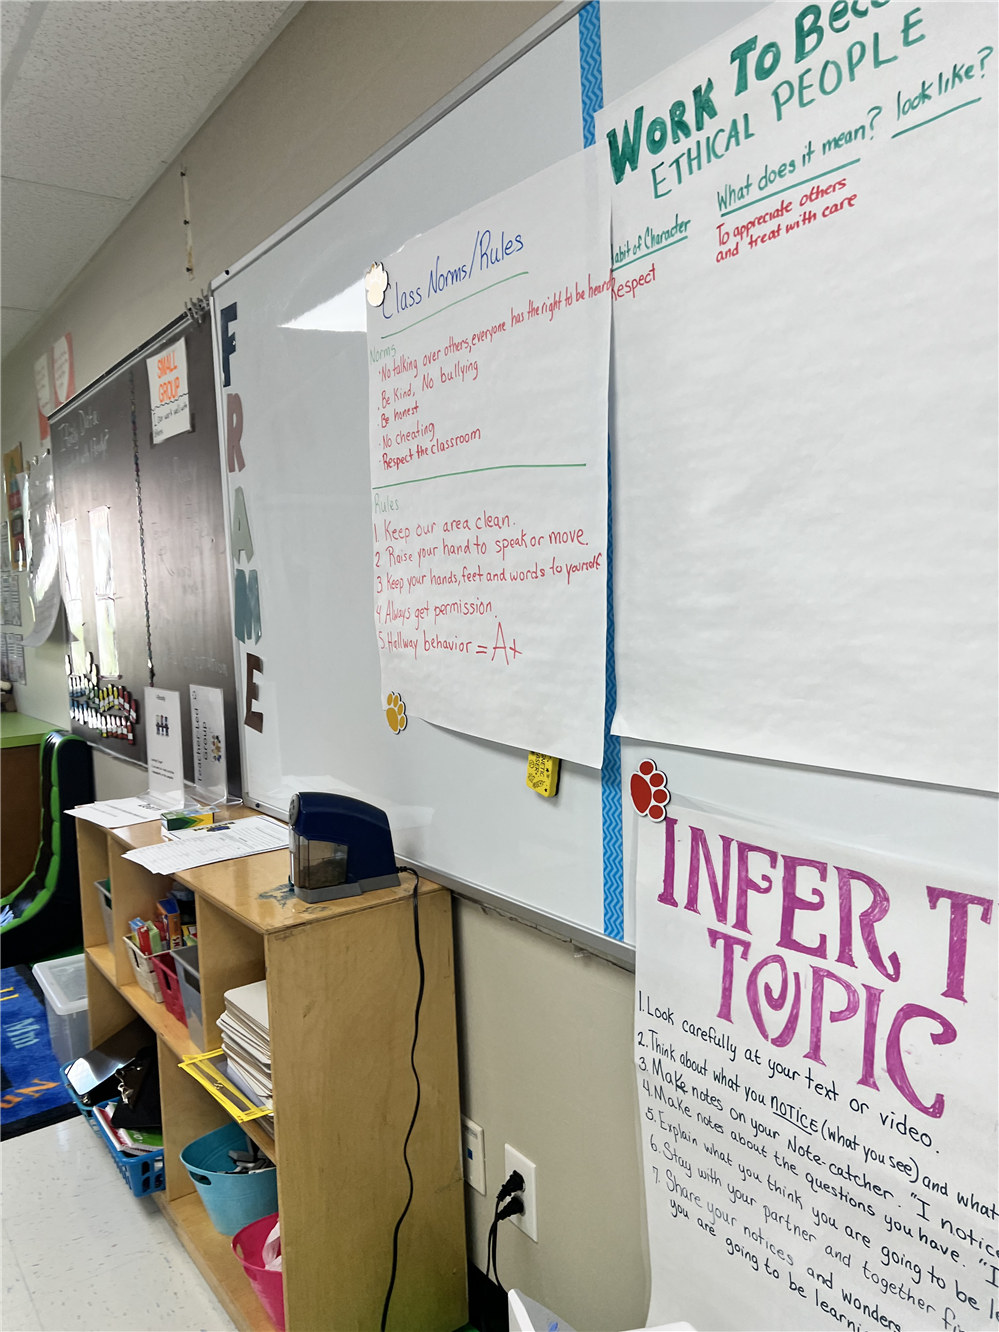 SMALL
GROUP
I can work well with
F
R
A
M
E
Teacher-Led
Group
Class Norms/Rules
Norms
·No talking over others, everyone has the right to be heard
·Be Kind, No bullying
·Be honest
·No cheating
·Respect the classroom
Rules
1. Keep our area clean.
2 Raise your hand to speak or move.
3 Keep your hands, feet and words to yourself
4 Always get permission.
5. Hallway behavior = A+
WORK TO Bec
ETHICAL PEOPLE
abit of Character
What does it mean?
look like?
Respect
To appreciate others
and treat with care
INFER T
TOPIC
1. Look carefully at your text or video.
2. Think about what you NOTICE (what you see) and what
3. Make notes on your Note-catcher. "I notice
4. Make notes about the questions you have. "I
5. Explain what you think you are going to be le
6. Stay with your partner and together
7. Share your notices and wonders
you are going to be learni
Mm